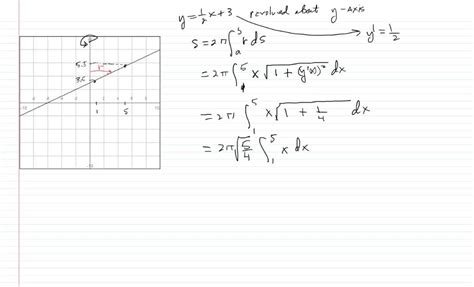 y = 1/2 x + 3 revolved about y-axis
y' = 1/2
S = 2π ∫_a^b r ds
= 2π ∫_1^5 x √(1 + (y'(x))²) dx
= 2π ∫_1^5 x √(1 + 1/4) dx
= 2π √(5/4) ∫_1^5 x dx
5.5
3.5
r
1 5